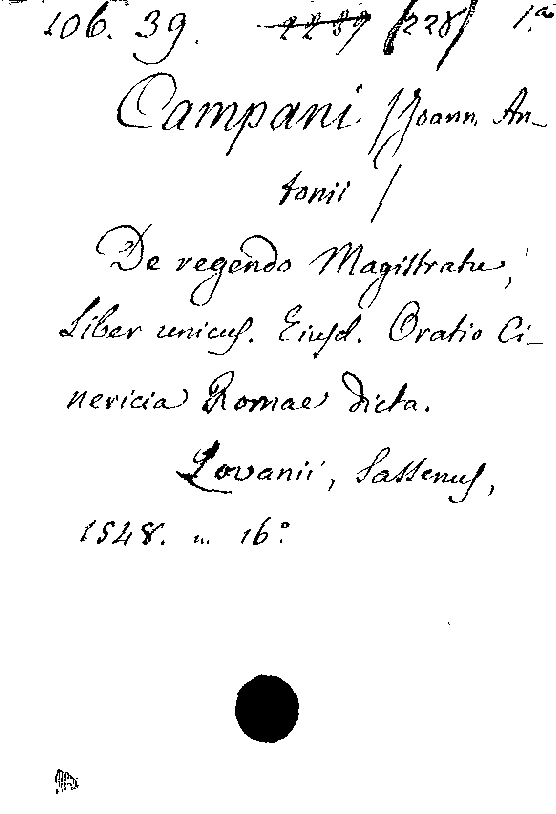 106. 39. 2289 /228/ 1.a
Campani /Joann. An-
tonii /
De regendo Magistratu,
Liber unicus. Eiusd. Oratio Ci-
nericia Romae dicta.
Lovanii, Sassenus,
1548. in 16°